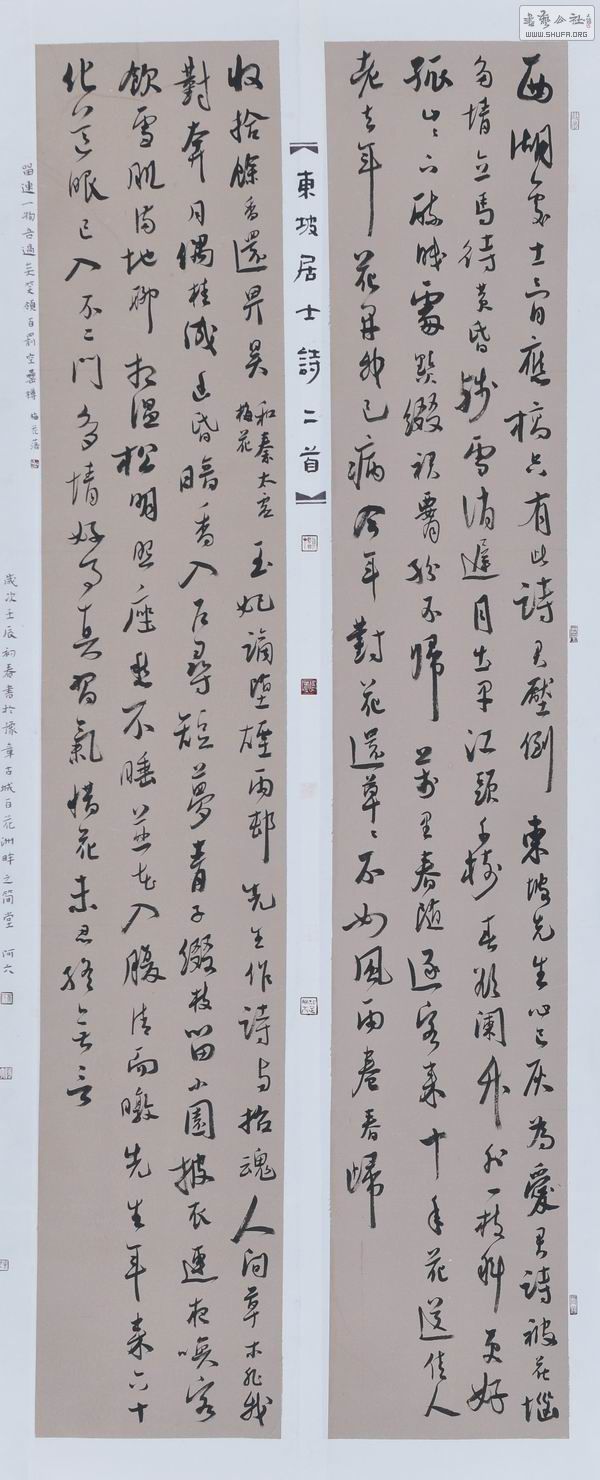 書藝公社
WWW.SHUFA.ORG
西湖處士骨應槁只有此詩君壓倒東坡先生心已灰為愛君詩被花惱
多情立馬待黃昏殘雪消遲月出早江頭千樹春欲闌竹外一枝斜更好
孤山々下醉眠處點綴裙腰紛不掃萬里春隨逐客來十年花送佳人
老去年花開我已病今年對花還草々不如風雨卷春歸
【東坡居士詩二首】
收拾餘香還畀昊 和秦太虛梅花 玉妃謫墮煙雨邨先生作詩與招魂人間草木非我
對奔月偶桂成幽昏暗香入戶尋短夢青子綴枝留小園披衣連夜喚客
飲雪肌滿地聊相溫松明照座愁不睡井花入腹清而暾先生年來六十
化道眼已入不二門多情好事真習氣惜花未忍終無言
留連一物吾過矣笑領百罰空罍樽 梅花落
歲次壬辰初春書於豫章古城百花洲畔之簡堂 阿六